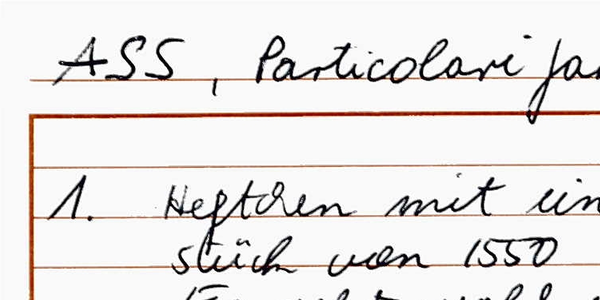 ASS, Particolari fa
1. Heftchen mit ein
stück von 1550